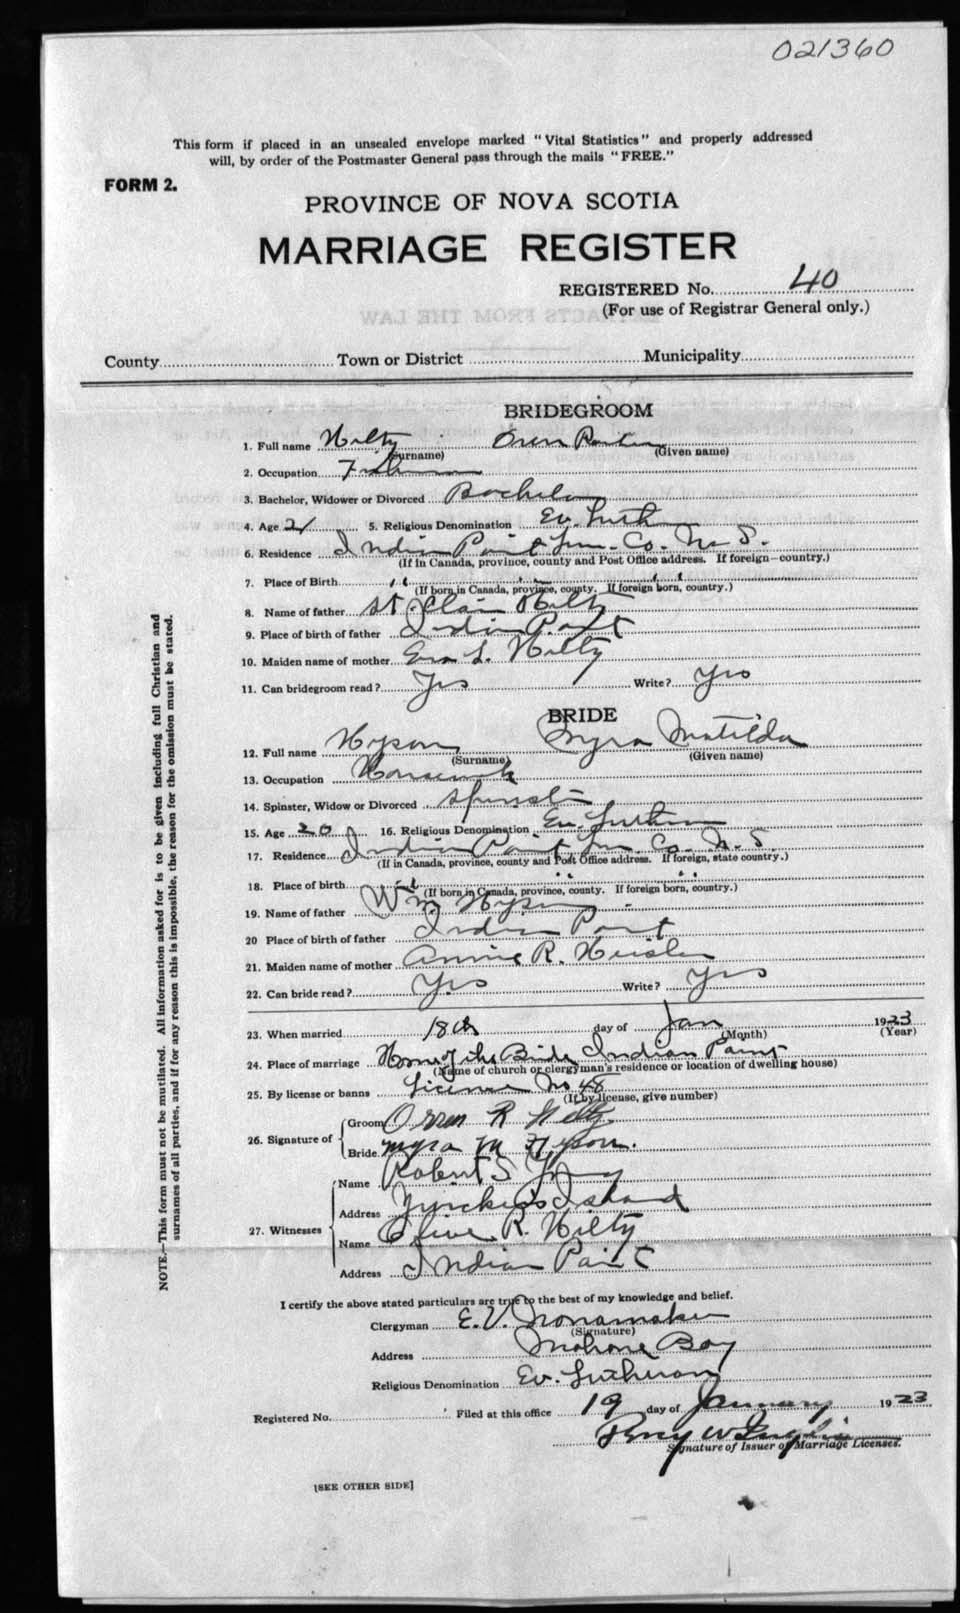 021360
This form if placed in an unsealed envelope marked "Vital Statistics" and properly addressed
will, by order of the Postmaster General pass through the mails "FREE."
FORM 2.
PROVINCE OF NOVA SCOTIA
MARRIAGE REGISTER
REGISTERED No. 40
(For use of Registrar General only.)
County Town or District Municipality
BRIDEGROOM
1. Full name Hilty Oren
(Surname) (Given name)
2. Occupation
3. Bachelor, Widower or Divorced Bachelor
4. Age 21 5. Religious Denomination Ev. Luth
6. Residence Indian Point Lun. Co. N. S.
(If in Canada, province, county and Post Office address. If foreign country.)
7. Place of Birth " " "
(If born in Canada, province, county. If foreign born, country.)
8. Name of father St. Clair Hilty
9. Place of birth of father Indian Point
10. Maiden name of mother Eva L. Hilty
11. Can bridegroom read? Yes Write? Yes
BRIDE
12. Full name Hyson Myra Matilda
(Surname) (Given name)
13. Occupation Housework
14. Spinster, Widow or Divorced Spinster
15. Age 20 16. Religious Denomination Ev. Lutheran
17. Residence Indian Point Lun. Co. N. S.
(If in Canada, province, county and Post Office address. If foreign, state country.)
18. Place of birth " " "
(If born in Canada, province, county. If foreign born, country.)
19. Name of father Wm Hyson
20 Place of birth of father Indian Point
21. Maiden name of mother Annie R. Heisler
22. Can bride read? Yes Write? Yes
23. When married 18th day of Jan 1923
(Month) (Year)
24. Place of marriage Home of the Bride Indian Point
(Name of church or clergyman's residence or location of dwelling house)
25. By license or banns License No 48
(If by license, give number)
26. Signature of Groom Orren R Hilty
Bride Myra M Hyson.
27. Witnesses Name Robert S
Address Island
Name Olive R. Hilty
Address Indian Point
I certify the above stated particulars are true to the best of my knowledge and belief.
Clergyman E. V. Nonamaker
(Signature)
Address Mahone Bay
Religious Denomination Ev. Lutheran
Registered No. Filed at this office 19 day of January 1923
Percy W Inglis
Signature of Issuer of Marriage Licenses.
[SEE OTHER SIDE]
NOTE.—This form must not be mutilated. All information asked for is to be given including full Christian and
surnames of all parties, and if for any reason this is impossible, the reason for the omission must be stated.